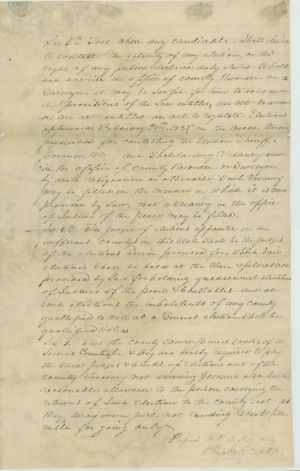 Sec 5th That when any candidate shall desire
to contest the validity of any election, or the
right of any person declared duly elected to hold
and exercise the office of county Recorder or a
Surveyor, it may be lawful for him to
the provisions of the Law entitled, an act to amend
an act entitled an act to regulate Elections
approved February 20th 1837 in the
prescribed for contesting the Election Sheriff,
Coroner, &c. and should any vacancy occur
in the office of county Recorder or Surveyor
by death resignation or otherwise such vacancy
may be filled in the manner in which it is now
provided by Law, that a vacancy in the office
of Justice of the peace may be filled.
Sec 6th The judges of elections
different counties in this State shall be the judges
of the elections herein provided for, which said
elections shall be held at the times & places
provided by law for holding quadrennial elections
of Justices of the peace & constables and at
such elections the inhabitants of any county
qualified to vote at a General election shall be
qualified voters
Sec 7 That the county Commissioners courts of the
several Counties be & they are hereby required to pay
the said judges & clerks of elections out of the
county Treasury not exceeding per day such
reasonable allowance to the person conveying the
returns of such elections to the county seat as
they may deem just, not exceeding cents per
mile for going only.